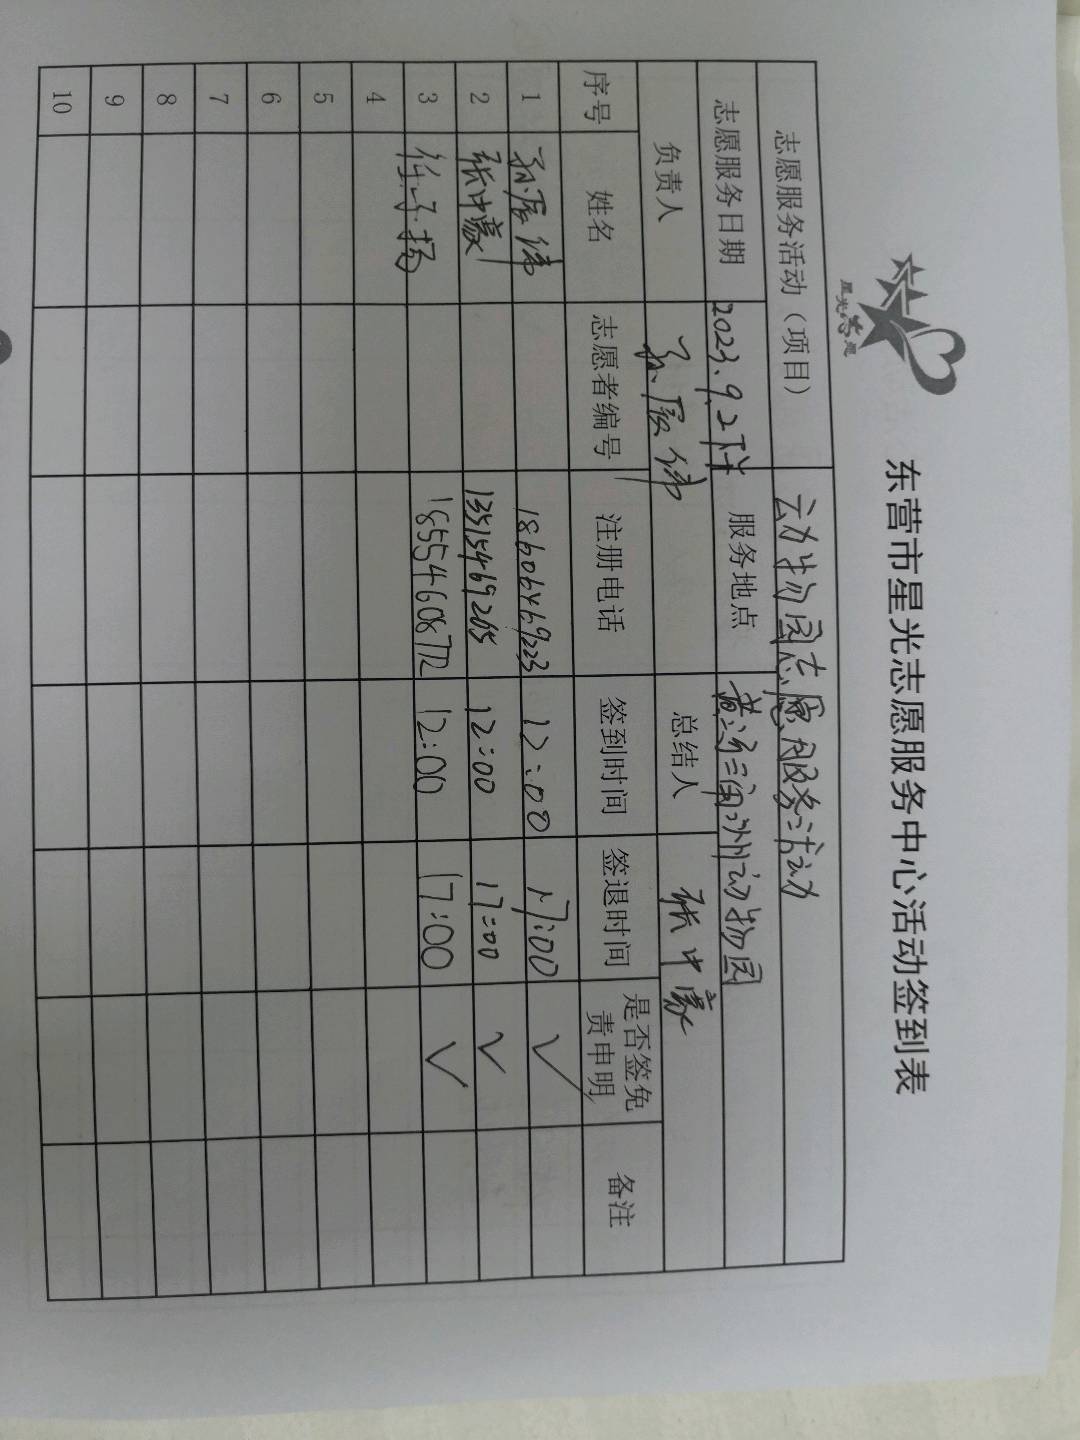 星光志愿
东营市星光志愿服务中心活动签到表
志愿服务活动（项目） 动物园志愿服务活动
志愿服务日期 2023.9.2下午 服务地点 黄河三角洲动物园
负责人 孙辰伟 总结人 张中豪
序号 姓名 志愿者编号 注册电话 签到时间 签退时间 是否签免责申明 备注
1 孙辰伟 18606469223 12:00 17:00 √
2 张中豪 13515469265 12:00 17:00 √
3 任子扬 18554608772 12:00 17:00 √
4
5
6
7
8
9
10